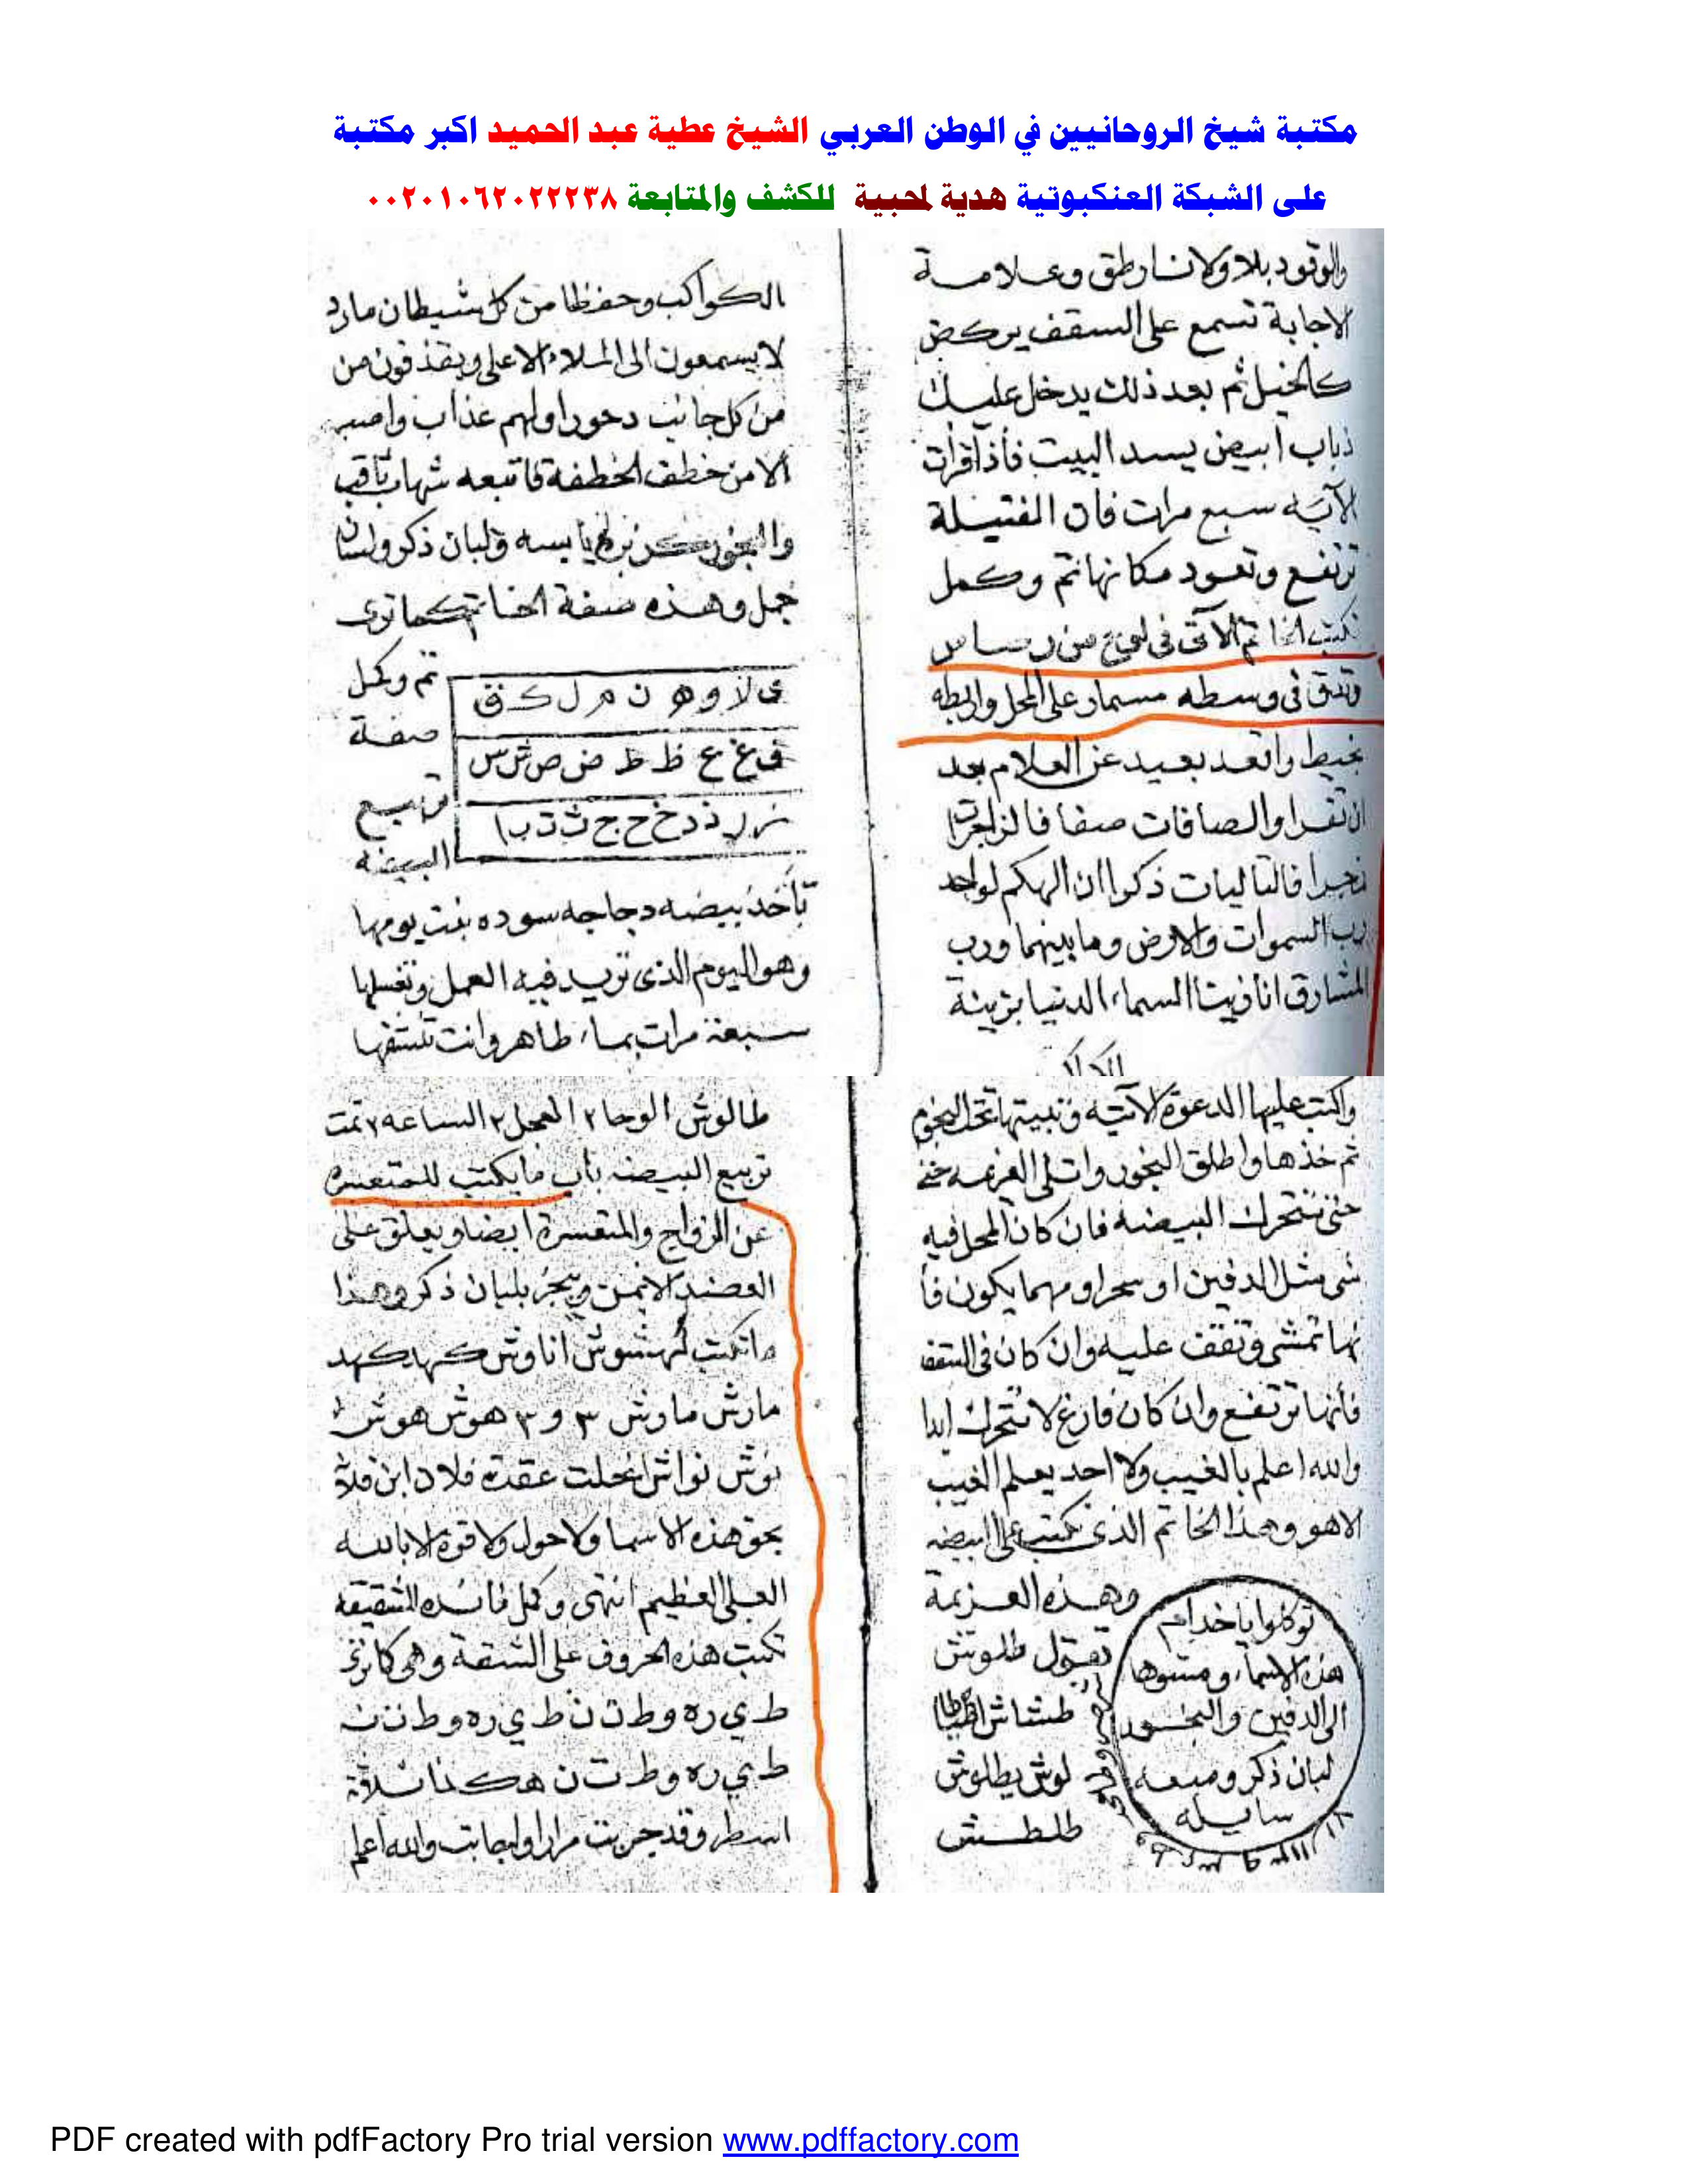 مكتبة شيخ الروحانيين في الوطن العربي الشيخ عطية عبد الحميد اكبر مكتبة
على الشبكة العنكبوتية هدية لمحبية للكشف والمتابعة ٠٠٢٠١٠٦٢٠٢٢٢٣٨
والوقود بلا وعلامة
الاجابة تسمع على السقف يركض
كالخيل ثم بعد ذلك يدخل عليك
ذباب ابيض يسد البيت فأذا قرات
الآيه سبع مرات فان الفتيلة
ترتفع وتعود مكانها تم وكمل
تكتب الخاتم الاتى فى لوح من رصاص
وتدق فى وسطه مسمار على المحل واربطه
بخيط واقعد بعيد عن العلام بعد
ان تقرا والصافات صفا فالزاجرات
زجرا فالتاليات ذكرا ان الهكم لواحد
رب السموات والارض وما بينهما ورب
المشارق انا زينا السماء الدنيا بزينة
الكواكب وحفظا من كل شيطان مارد
لا يسمعون الى الملاء الاعلى ويقذفون من
من كل جانب دحورا ولهم عذاب واصب
الا من خطف الخطفة فاتبعه شهاب ثاقب
والبخور يابسه ولبان ذكر ولسان
جمل وهذه صفة الخاتم كما ترى
تم وكمل
صفة
تربيع
البيضه
ى لا و ه ن م ل ك ق
ف غ ع ظ ط ض ص ش س
ز ر ذ د خ ح ج ث ت ب ا
تأخذ بيضه دجاجه سوده بنت يومها
وهو اليوم الذى تريد فيه العمل وتغسلها
سبعة مرات بماء طاهر وانت تنشفها
واكتب عليها الدعوة الآتيه وتبيتها تحت النجوم
ثم خذها واطلق البخور واتلى العزيمه
حتى تتحرك البيضه فان كان المحل فيه
شى مثل الدفين او سحر او مهما يكون فأ
نها تمشى وتقف عليه وان كان فى السقف
فأنها ترتفع وان كان فارغ لا تتحرك ابدا
والله اعلم بالغيب ولا احد يعلم الغيب
الا هو وهذا الخاتم الذى تكتب على البيضه
وهذه العزيمة
تقول طلوش
طشاش
لوش يطلوش
طلطش
توكلوا يا خدام
هذه الاسماء ومشوها
الى الدفين والبخور
لبان ذكر وميعه
سايله
طالوش الوحا ٢ العجل ٢ الساعه ٢ تمت
تربيع البيضه باب ما يكتب للمتعسره
عن الزواج والمتعسرة ايضا ويعلق على
العضد الايمن ويبخر بلبان ذكر وهذا
ما تكتب كهشوش اناوش كهد كهد
مارش مارش ٣ و ٣ هوش هوش
نوش نواش انحلت عقدة فلان ابن فلانة
بحق هذه الاسما ولا حول ولا قوة الا بالله
العلى العظيم انتهى وكمل فائده للشقيقه
تكتب هذه الحروف على الشقة وهى كما ترى
ط ي ر ه و ط ن ن ط ي ر ه و ط ن ن
ط ي ر ه و ط ن ن هكذا ثلاثة
اسطر وقد جربت مرارا واجابت والله اعلم
PDF created with pdfFactory Pro trial version www.pdffactory.com